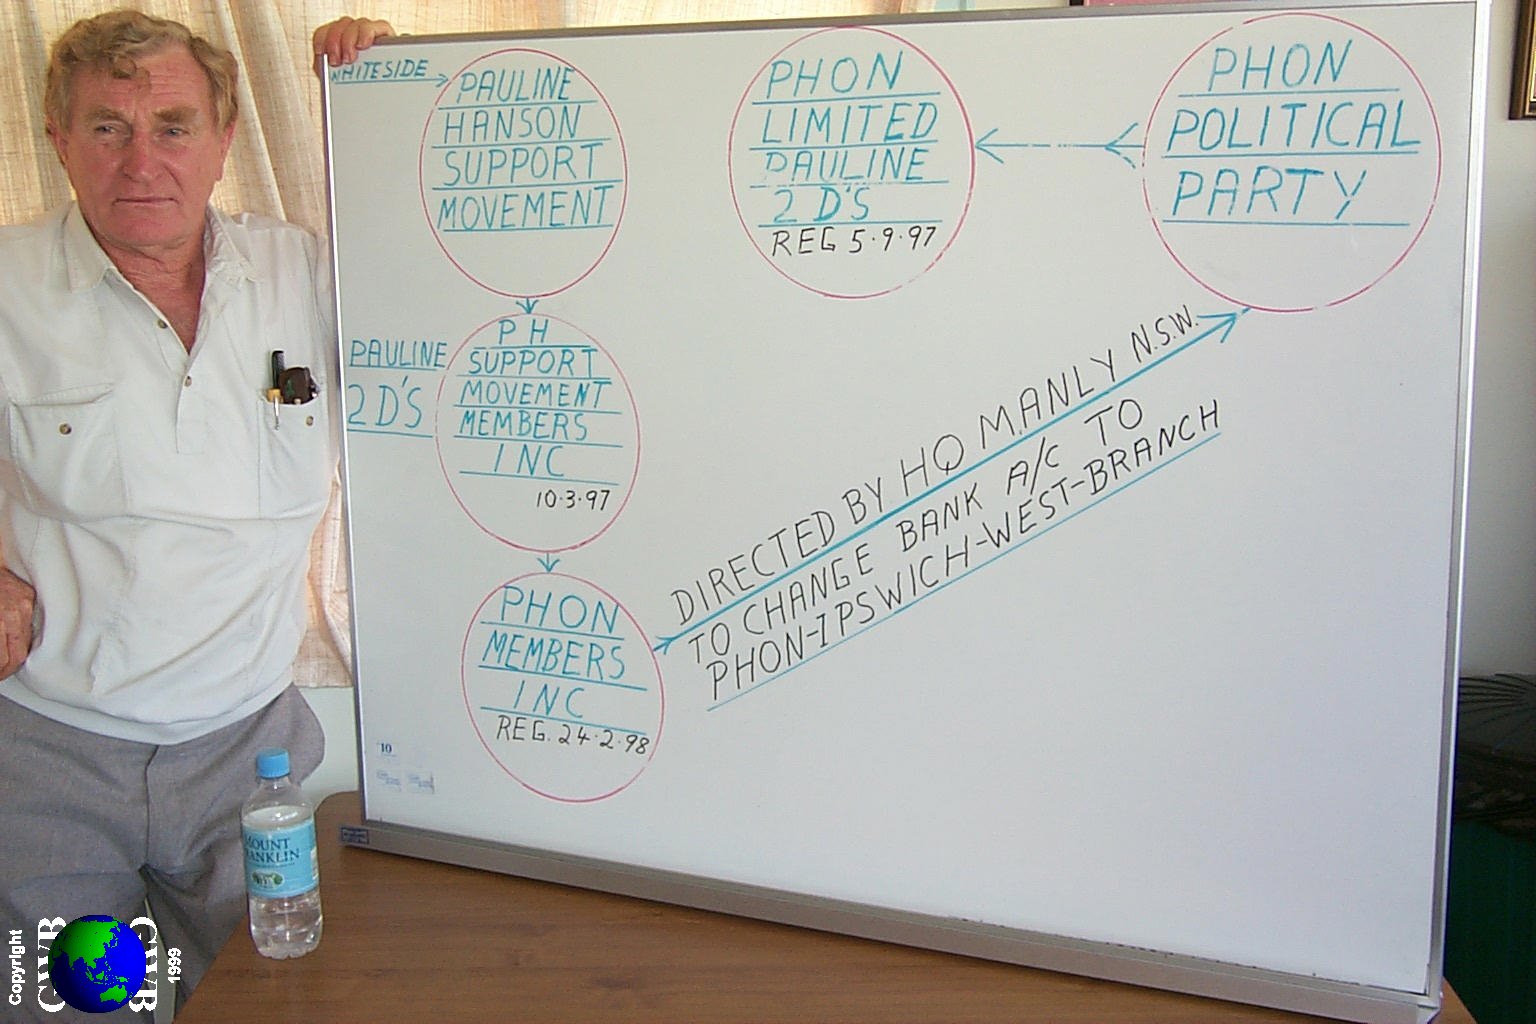 WHITESIDE
PAULINE
HANSON
SUPPORT
MOVEMENT
PHON
LIMITED
PAULINE
2 D'S
REG 5·9·97
PHON
POLITICAL
PARTY
PAULINE
2 D'S
P H
SUPPORT
MOVEMENT
MEMBERS
INC
10·3·97
PHON
MEMBERS
INC
REG. 24·2·98
DIRECTED BY HQ MANLY N.S.W.
TO CHANGE BANK A/C TO
PHON-IPSWICH-WEST-BRANCH
10
MOUNT
FRANKLIN
Copyright
GWB
GWB
1999